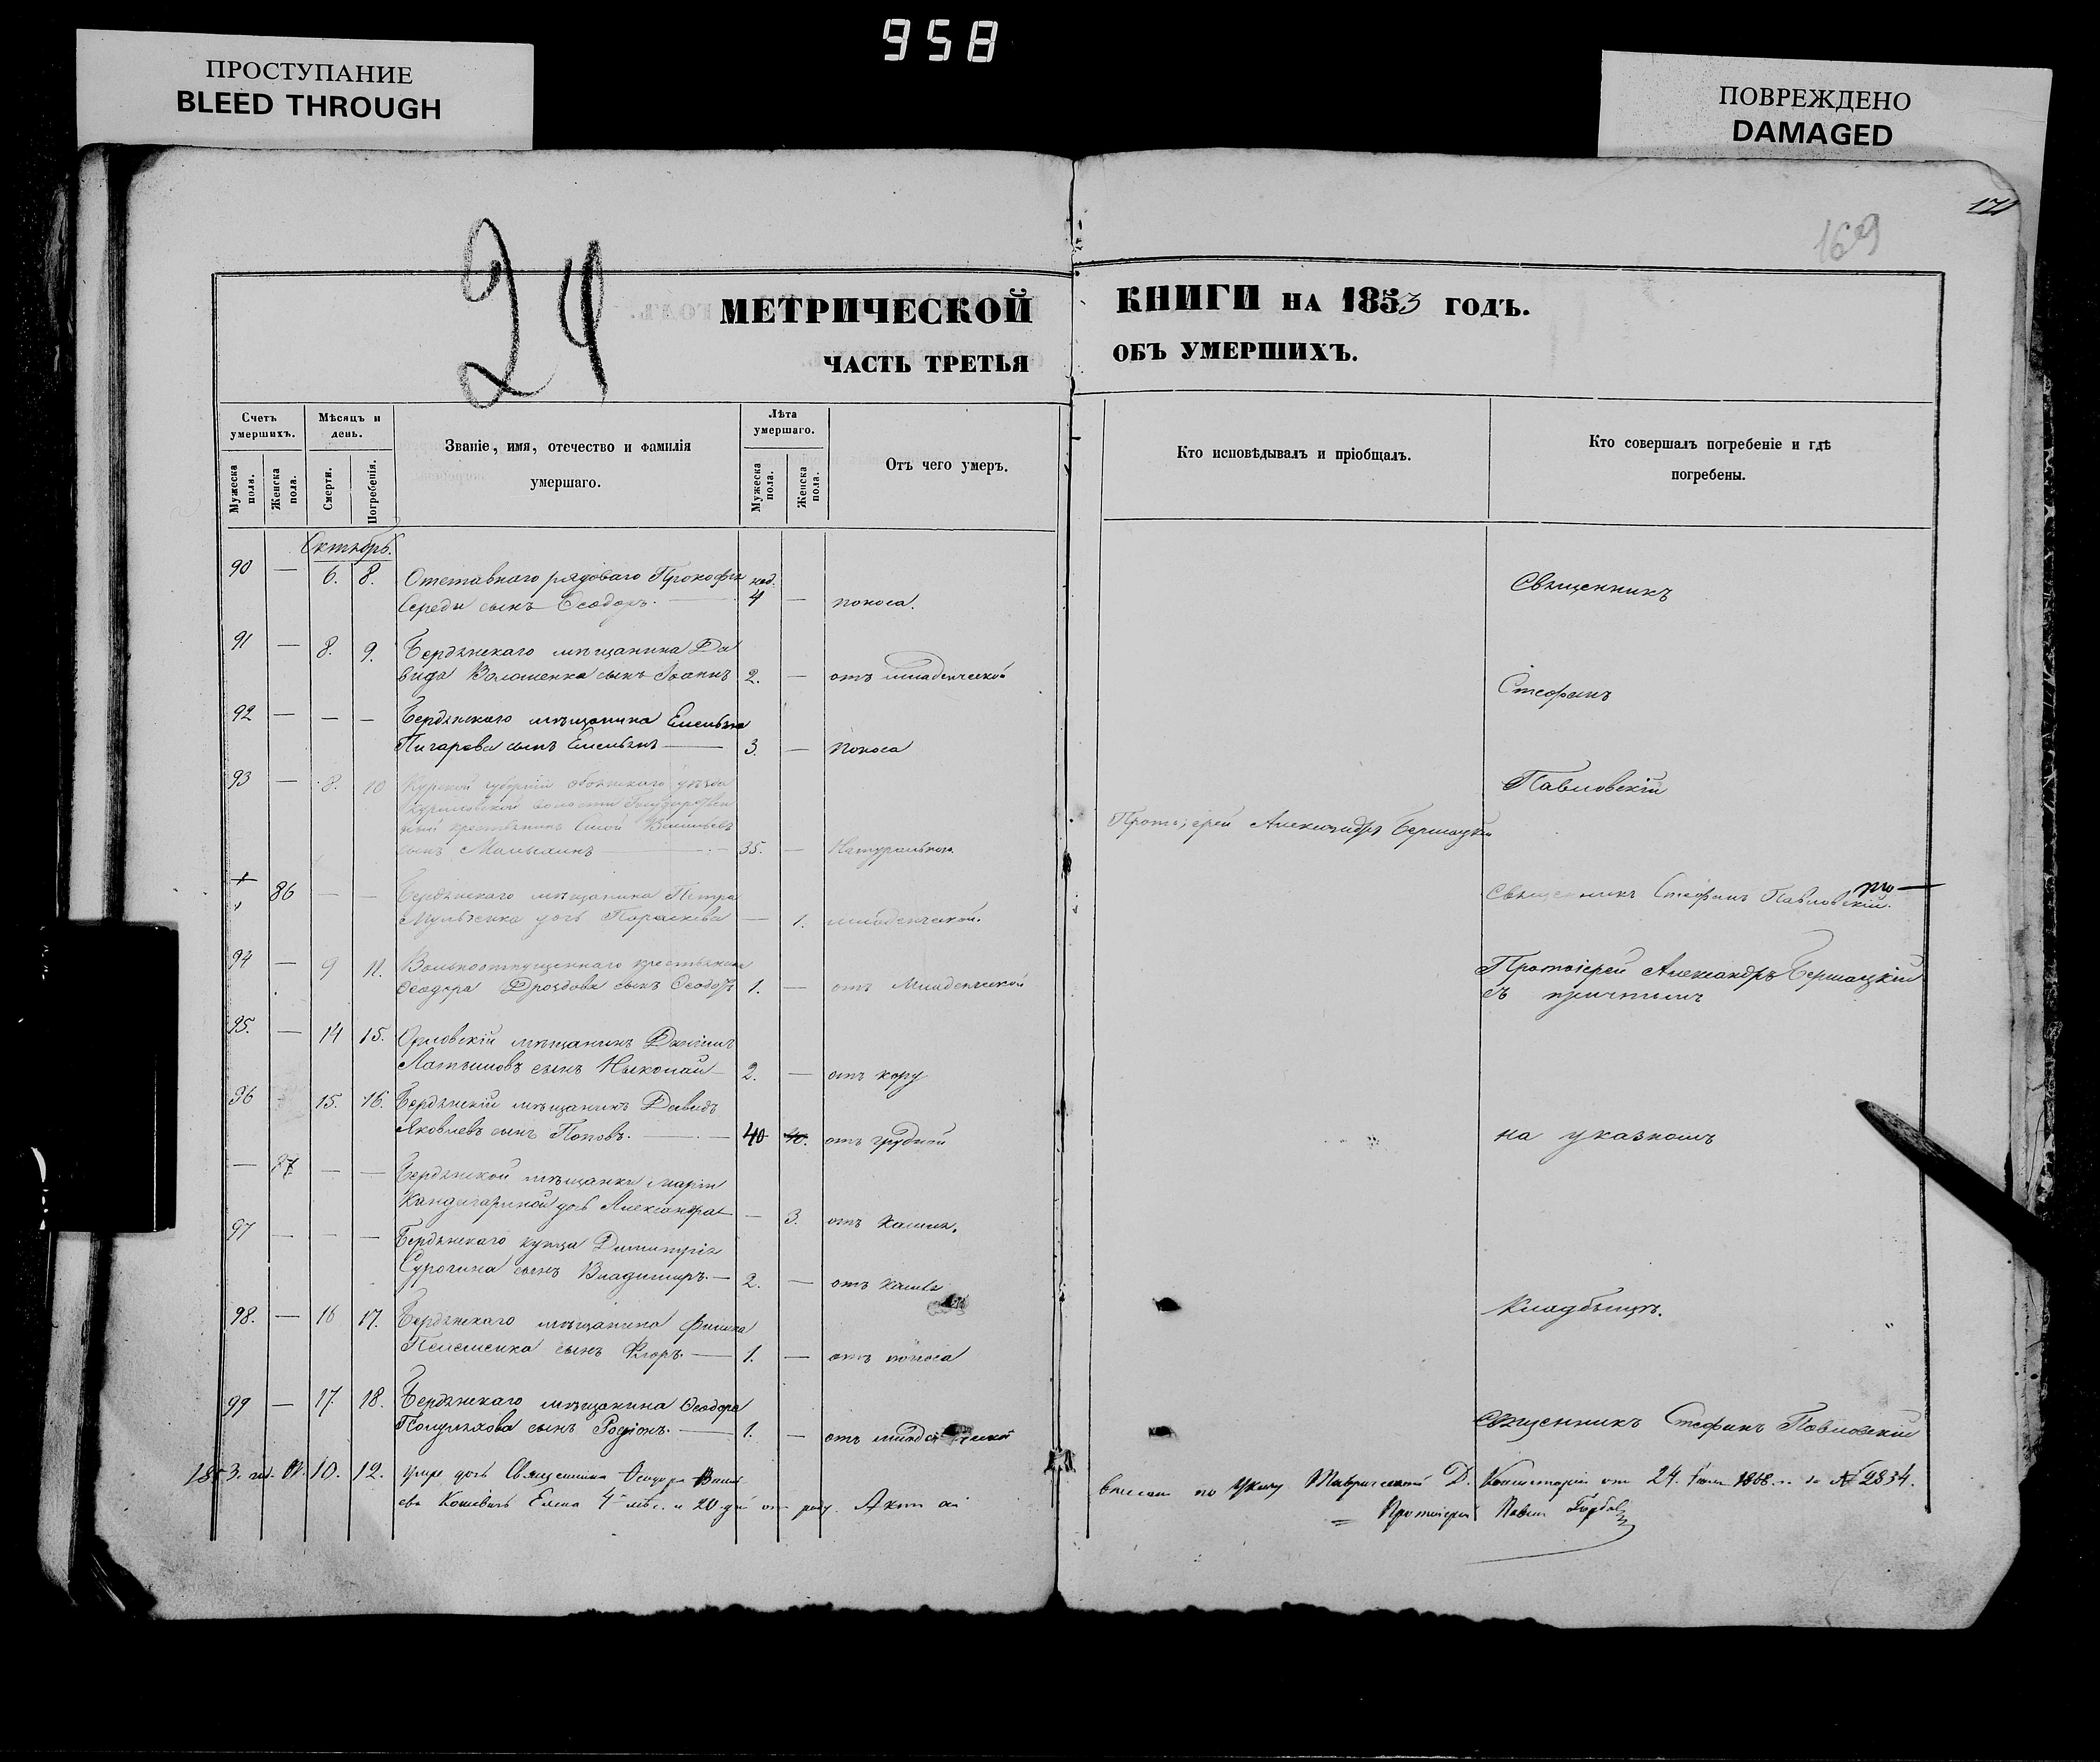 958
ПРОСТУПАНИЕ
BLEED THROUGH
ПОВРЕЖДЕНО
DAMAGED
171
169
24
МЕТРИЧЕСКОЙ КНИГИ НА 1853 ГОДЪ.
ЧАСТЬ ТРЕТЬЯ ОБЪ УМЕРШИХЪ.
Счетъ умершихъ.
Мужеска пола.
Женска пола.
Мѣсяцъ и день.
Смерти.
Погребенія.
Званіе, имя, отечество и фамилія
умершаго.
Лѣта умершаго.
Мужеска пола.
Женска пола.
Отъ чего умеръ.
Кто исповѣдывалъ и пріобщалъ.
Кто совершалъ погребеніе и гдѣ
погребены.
Октябрь.
90 — 6. 8. Отставнаго рядоваго Прокофія нед.
Середы сынъ Ѳеодоръ. 4 — поноса.
Священникъ
91 — 8. 9. Бердянскаго мѣщанина Да
вида Волошенка сынъ Іоаннъ 2. — отъ младенческой
Стефанъ
92 — — — Бердянскаго мѣщанина Емельяна
Пигарева сынъ Емельянъ — 3. — поноса
Павловскій
93 — 8. 10 Курской губерніи обоянскаго уѣзда
волости Государствен
ный крестьянинъ Васильевъ
сынъ 35. — Натуральною
Протоіерей Александръ
86 — — Бердянскаго мѣщанина Петра
дочь Параскева — 1. младенческой.
Священникъ Стефанъ Павловскій.
94 — 9 11. Вольноотпущеннаго крестьянина
Ѳеодора Дроздова сынъ Ѳеодоръ 1. — отъ Младенческой
Протоіерей Александръ
съ причтомъ
95. — 14 15. Орловскій мѣщанинъ Даніилъ
сынъ Николай 2. — отъ кору
96 15. 16. Бердянскій мѣщанинъ Давидъ
Яковлевъ сынъ Поповъ. — 40 40. отъ грудной
на указномъ
— 87 — — Бердянской мѣщанки Маріи
дочь Александра — 3. отъ кашля.
97 — — — Бердянскаго купца Димитрія
сынъ Владимиръ. — 2. — отъ кашля
98. — 16 17. Бердянскаго мѣщанина
сынъ Егоръ. — 1. — отъ поноса
Кладбищѣ.
99 — 17. 18. Бердянскаго мѣщанина Ѳеодора
сынъ Родіонъ. — 1. — отъ младенческой
Священникъ Стефанъ Павловскій
1853. 10. 12. дочь Священника Ѳеодора
Елена 4 мѣс. и 20 дн
по Указу Таврической Д. Консисторіи от 24. 1868. за № 2834.
Протоіерей Павелъ